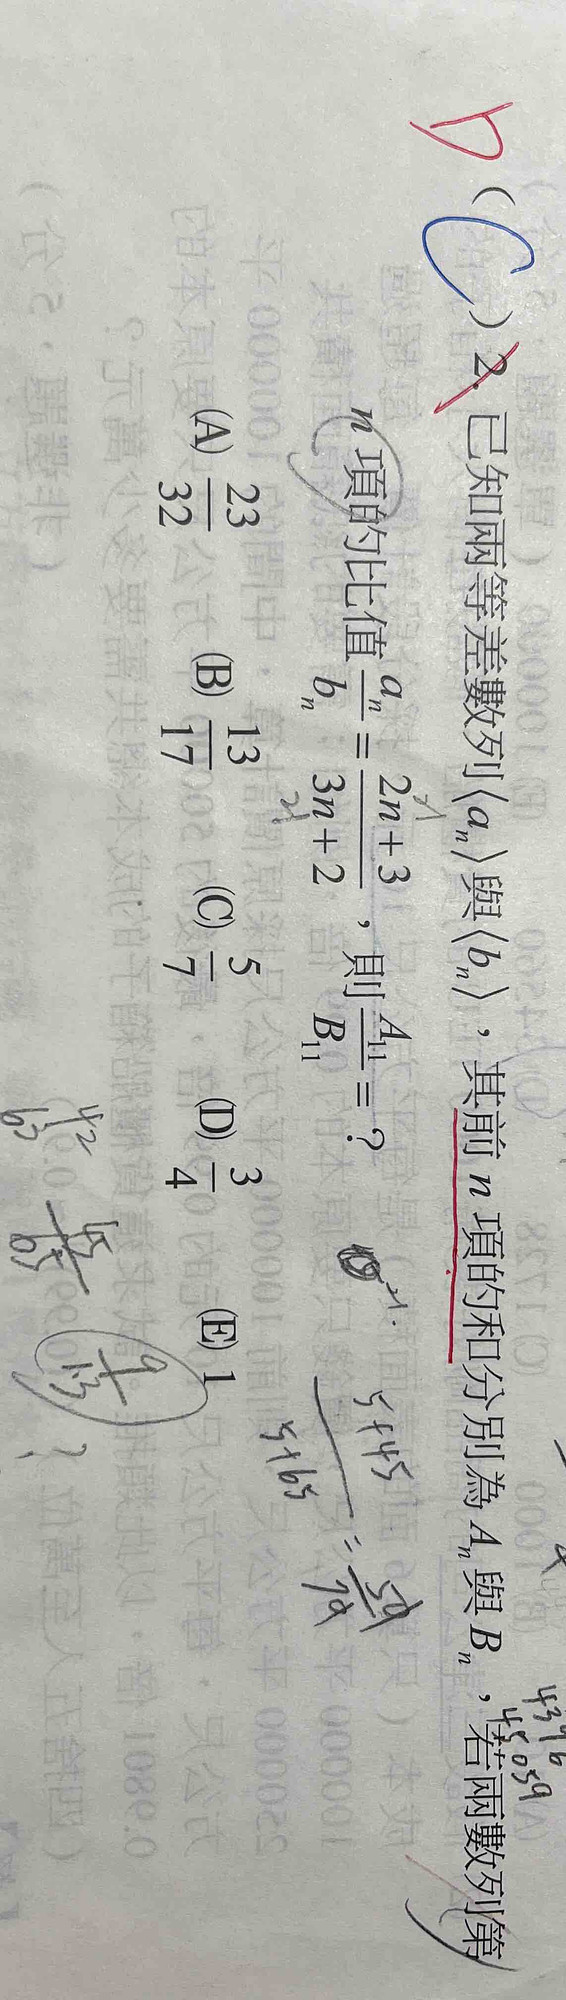 D (C) 2. 已知兩等差數列⟨aₙ⟩與⟨bₙ⟩，其前 n 項的和分別為 Aₙ 與 Bₙ，若兩數列第
n 項的比值 aₙ/bₙ = (2n+3)/(3n+2)，則 A₁₁/B₁₁ = ?
(A) 23/32 (B) 13/17 (C) 5/7 (D) 3/4 (E) 1
5+45/5+65 = 50/70
42/63 45/65 9/13 ?